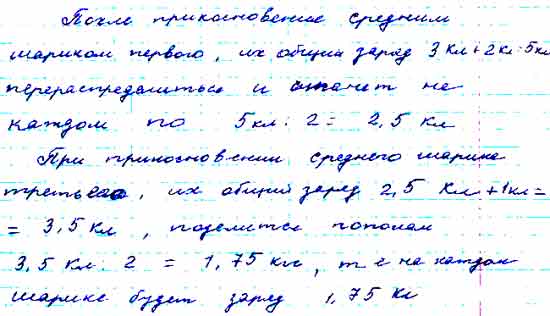 После прикосновение средним
шариком первого, их общий заряд 3 Кл + 2 Кл = 5 Кл
перераспределиться и станет на
каждом по 5 Кл : 2 = 2,5 Кл
При прикосновении среднего шарика
третьего, их общий заряд 2,5 Кл + 1 Кл =
= 3,5 Кл, поделится пополам
3,5 Кл : 2 = 1,75 Кл, т е на каждом
шарике будет заряд 1,75 Кл